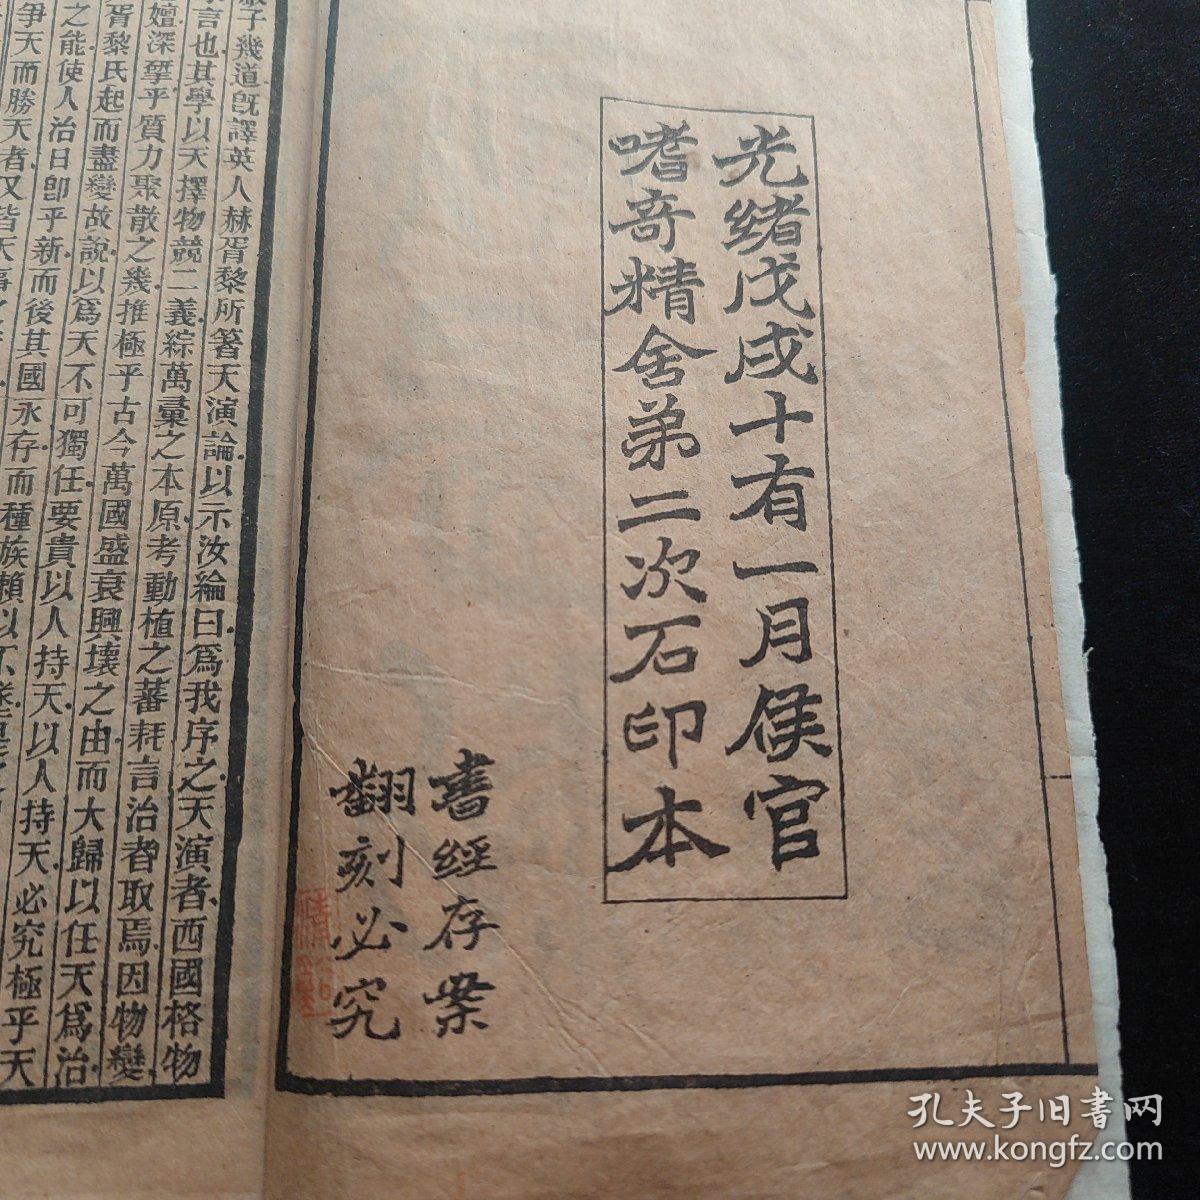 光緒戊戌十有一月侯官
嗜奇精舍弟二次石印本
書經存案
翻刻必究
子幾道既譯英人赫胥黎所箸天演論以示汝綸曰爲我序之天演者西國格物
言也其學以天擇物競二義綜萬彙之本原考動植之蕃耗言治者取焉因物變
嬗深揅乎質力聚散之幾推極乎古今萬國盛衰興壞之由而大歸以任天爲治
胥黎氏起而盡變故說以爲天不可獨任要貴以人持天以人持天必究極乎天
之能使人治日卽乎新而後其國永存而種族賴以不
爭天而勝天者又皆天
孔夫子旧書网
www.kongfz.com